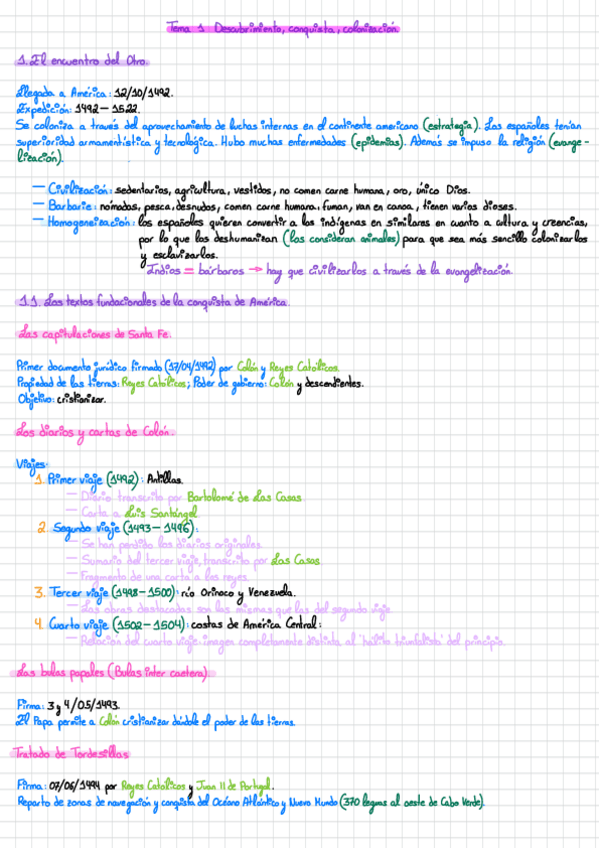 Tema 1 Descubrimiento, conquista, colonización
1. El encuentro del Otro.
Llegada a América: 12/10/1492.
Expedición: 1492 — 1522.
Se coloniza a través del aprovechamiento de luchas internas en el continente americano (estrategia). Los españoles tenían
superioridad armamentística y tecnológica. Hubo muchas enfermedades (epidemias). Además se impuso la religión (evange-
lización).
— Civilización: sedentarios, agricultura, vestidos, no comen carne humana, oro, único Dios.
— Barbarie: nómadas, pesca, desnudos, comen carne humana, fuman, van en canoa, tienen varios dioses.
— Homogeneización: los españoles quieren convertir a los indígenas en similares en cuanto a cultura y creencias,
por lo que los deshumanizan (los consideran animales) para que sea más sencillo colonizarlos
y esclavizarlos.
Indios = bárbaros → hay que civilizarlos a través de la evangelización.
1.1. Los textos fundacionales de la conquista de América.
Las capitulaciones de Santa Fe.
Primer documento jurídico firmado (17/04/1492) por Colón y Reyes Católicos.
Propiedad de las tierras: Reyes Católicos; Poder de gobierno: Colón y descendientes.
Objetivo: cristianizar.
Los diarios y cartas de Colón.
Viajes:
1. Primer viaje (1492): Antillas.
— Diario transcrito por Bartolomé de Las Casas
— Carta a Luis Santángel
2. Segundo viaje (1493 — 1496):
— Se han perdido los diarios originales.
— Sumario del tercer viaje, transcrito por Las Casas
— Fragmento de una carta a los reyes.
3. Tercer viaje (1498 — 1500): río Orinoco y Venezuela.
— Las obras destacadas son las mismas que las del segundo viaje
4. Cuarto viaje (1502 — 1504): costas de América Central:
— Relación del cuarto viaje: imagen completamente distinta al 'hálito triunfalista' del principio.
Las bulas papales (Bulas inter caetera)
Firma: 3 y 4/05/1493.
El Papa permite a Colón cristianizar dándole el poder de las tierras.
Tratado de Tordesillas
Firma: 07/06/1494 por Reyes Católicos y Juan II de Portugal.
Reparto de zonas de navegación y conquista del Océano Atlántico y Nuevo Mundo (370 leguas al oeste de Cabo Verde).